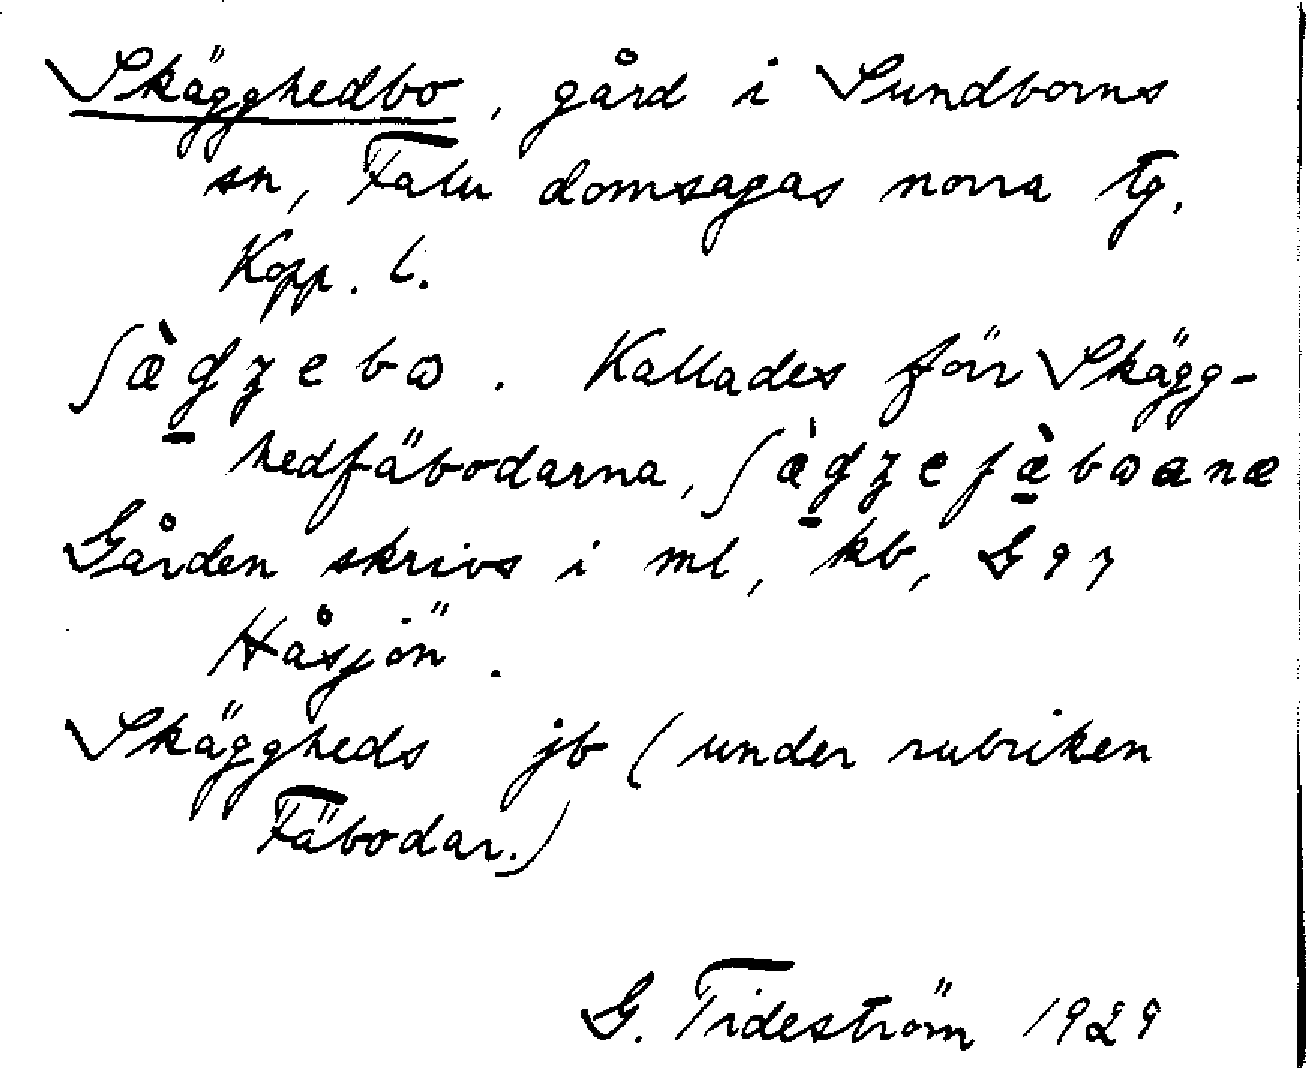 Skägghedbo, gård i Sundborns
sn, Falu domsagas norra tg.
Kopp. l.
ʃæ̀gʒebɷ. Kallades förr Skägg-
hedfäbodarna, ʃæ̀gʒefæ̀bɷanæ
Gården skrivs i ml, kb, G 97
Håsjön.
Skäggheds jb (under rubriken
Fäbodar.)
G. Tideström 1929